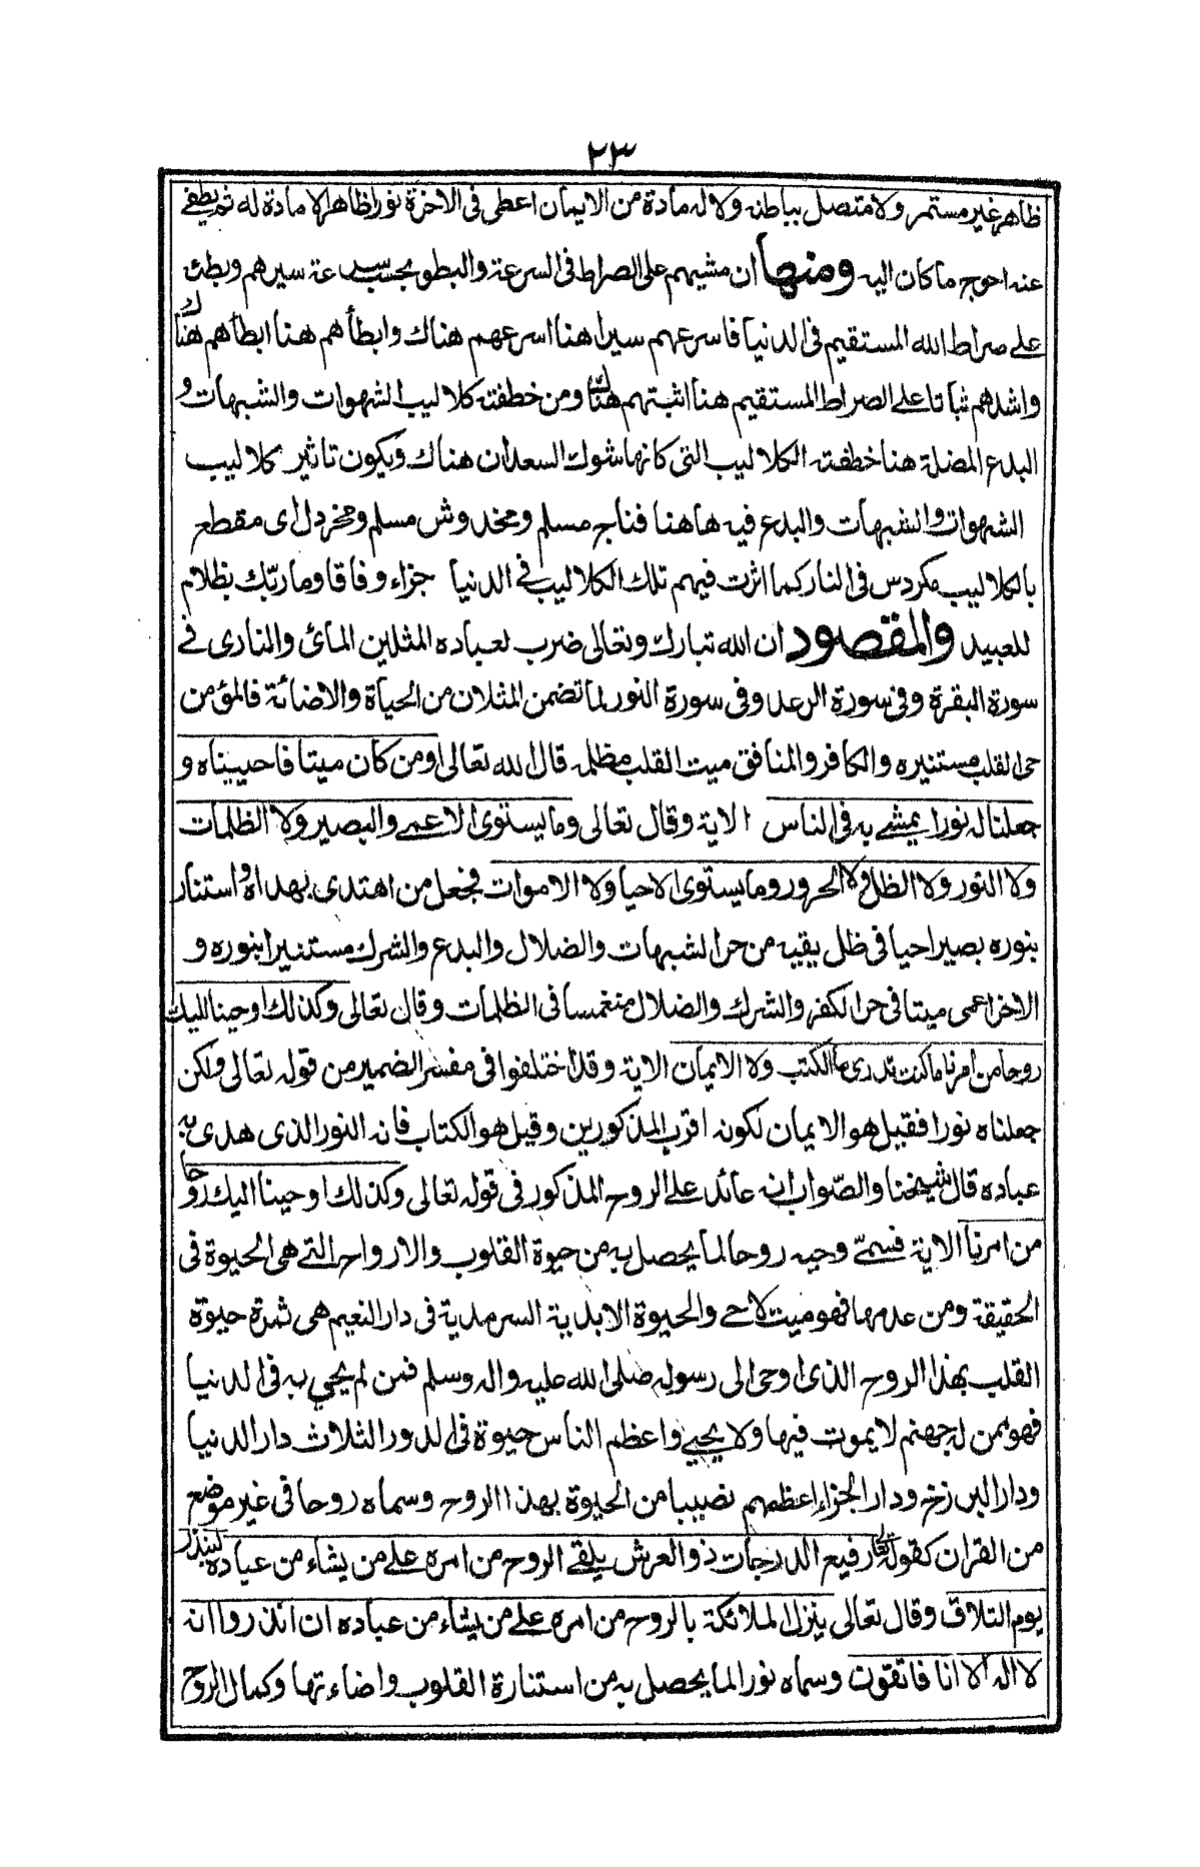 ٢٣
ظاهر غير مستمر ولا متصل بباطنه ولا له مادة من الايمان اعطى فى الاخرة نورا ظاهرا لا مادة له ثم يطفى
عنه احوج ما كان اليه ومنها ان مشيهم على الصراط فى السرعة والبطو بحسب سرعة سيرهم وبطئه
على صراط الله المستقيم فى الدنيا فاسرعهم سيرا هنا اسرعهم هناك وابطأهم هنا ابطأهم هناك
واشدهم ثباتا على الصراط المستقيم هنا اثبتهم هناك ومن خطفته كلاليب الشهوات والشبهات و
البدع المضلة هنا خطفته الكلاليب التى كانها شوك السعدان هناك ويكون تاثير كلاليب
الشهوات والشبهات والبدع فيه هاهنا فناج مسلم ومخدوش مسلم ومخردل اى مقطع
بالكلاليب مكردس فى النار كما اثرت فيهم تلك الكلاليب فى الدنيا جزاء وفاقا وما ربّك بظلام
للعبيد والمقصود ان الله تبارك وتعالى ضرب لعباده المثلين المائى والنارى فى
سورة البقرة وفى سورة الرعد وفى سورة النور لما تضمن المثلان من الحياة والاضائة فالمؤمن
حى القلب مستنيره والكافر والمنافق ميت القلب مظلمه قال الله تعالى اومن كان ميتا فاحييناه و
جعلنا له نورا يمشى به فى الناس الاية وقال تعالى وما يستوى الاعمى والبصير ولا الظلمات
ولا النور ولا الظل ولا الحرور وما يستوى الاحيا ولا الاموات فجعل من اهتدى بهداه واستنار
بنوره بصيرا حيا فى ظل يقيه من حر الشبهات والضلال والبدع والشرك مستنيرا بنوره و
الاخر اعمى ميتا فى حر الكفر والشرك والضلال منغمسا فى الظلمات وقال تعالى وكذلك اوحينا اليك
روحا من امرنا ما كنت تدرى ما الكتب ولا الايمان الاية وقد اختلفوا فى مفسر الضمير من قوله تعالى ولكن
جعلناه نورا فقيل هو الايمان لكونه اقرب المذكورين وقيل هو الكتاب فانه النور الذى هدى به
عباده قال شيخنا والصّواب انه عائد على الروح المذكور فى قوله تعالى وكذلك اوحينا اليك روحا
من امرنا الاية فسمّى وحيه روحا لما يحصل به من حيوة القلوب والارواح التى هى الحيوة فى
الحقيقة ومن عدمها فهو ميت لا حى والحيوة الابدية السرمدية فى دار النعيم هى ثمرة حيوة
القلب بهذا الروح الذى اوحى الى رسوله صلى الله عليه واله وسلم فمن لم يحي به فى الدنيا
فهو ممن له جهنم لا يموت فيها ولا يحيى واعظم الناس حيوة فى الدور الثلاث دار الدنيا
ودار البرزخ ودار الجزاء اعظمهم نصيبا من الحيوة بهذا الروح وسماه روحا فى غير موضع
من القران كقوله تعالى رفيع الدرجات ذو العرش يلقى الروح من امره على من يشاء من عباده لينذر
يوم التلاق وقال تعالى ينزل الملائكة بالروح من امره على من يشاء من عباده ان انذروا انه
لا اله الا انا فاتقون وسماه نورا لما يحصل به من استنارة القلوب واضاءتها وكمال الروح